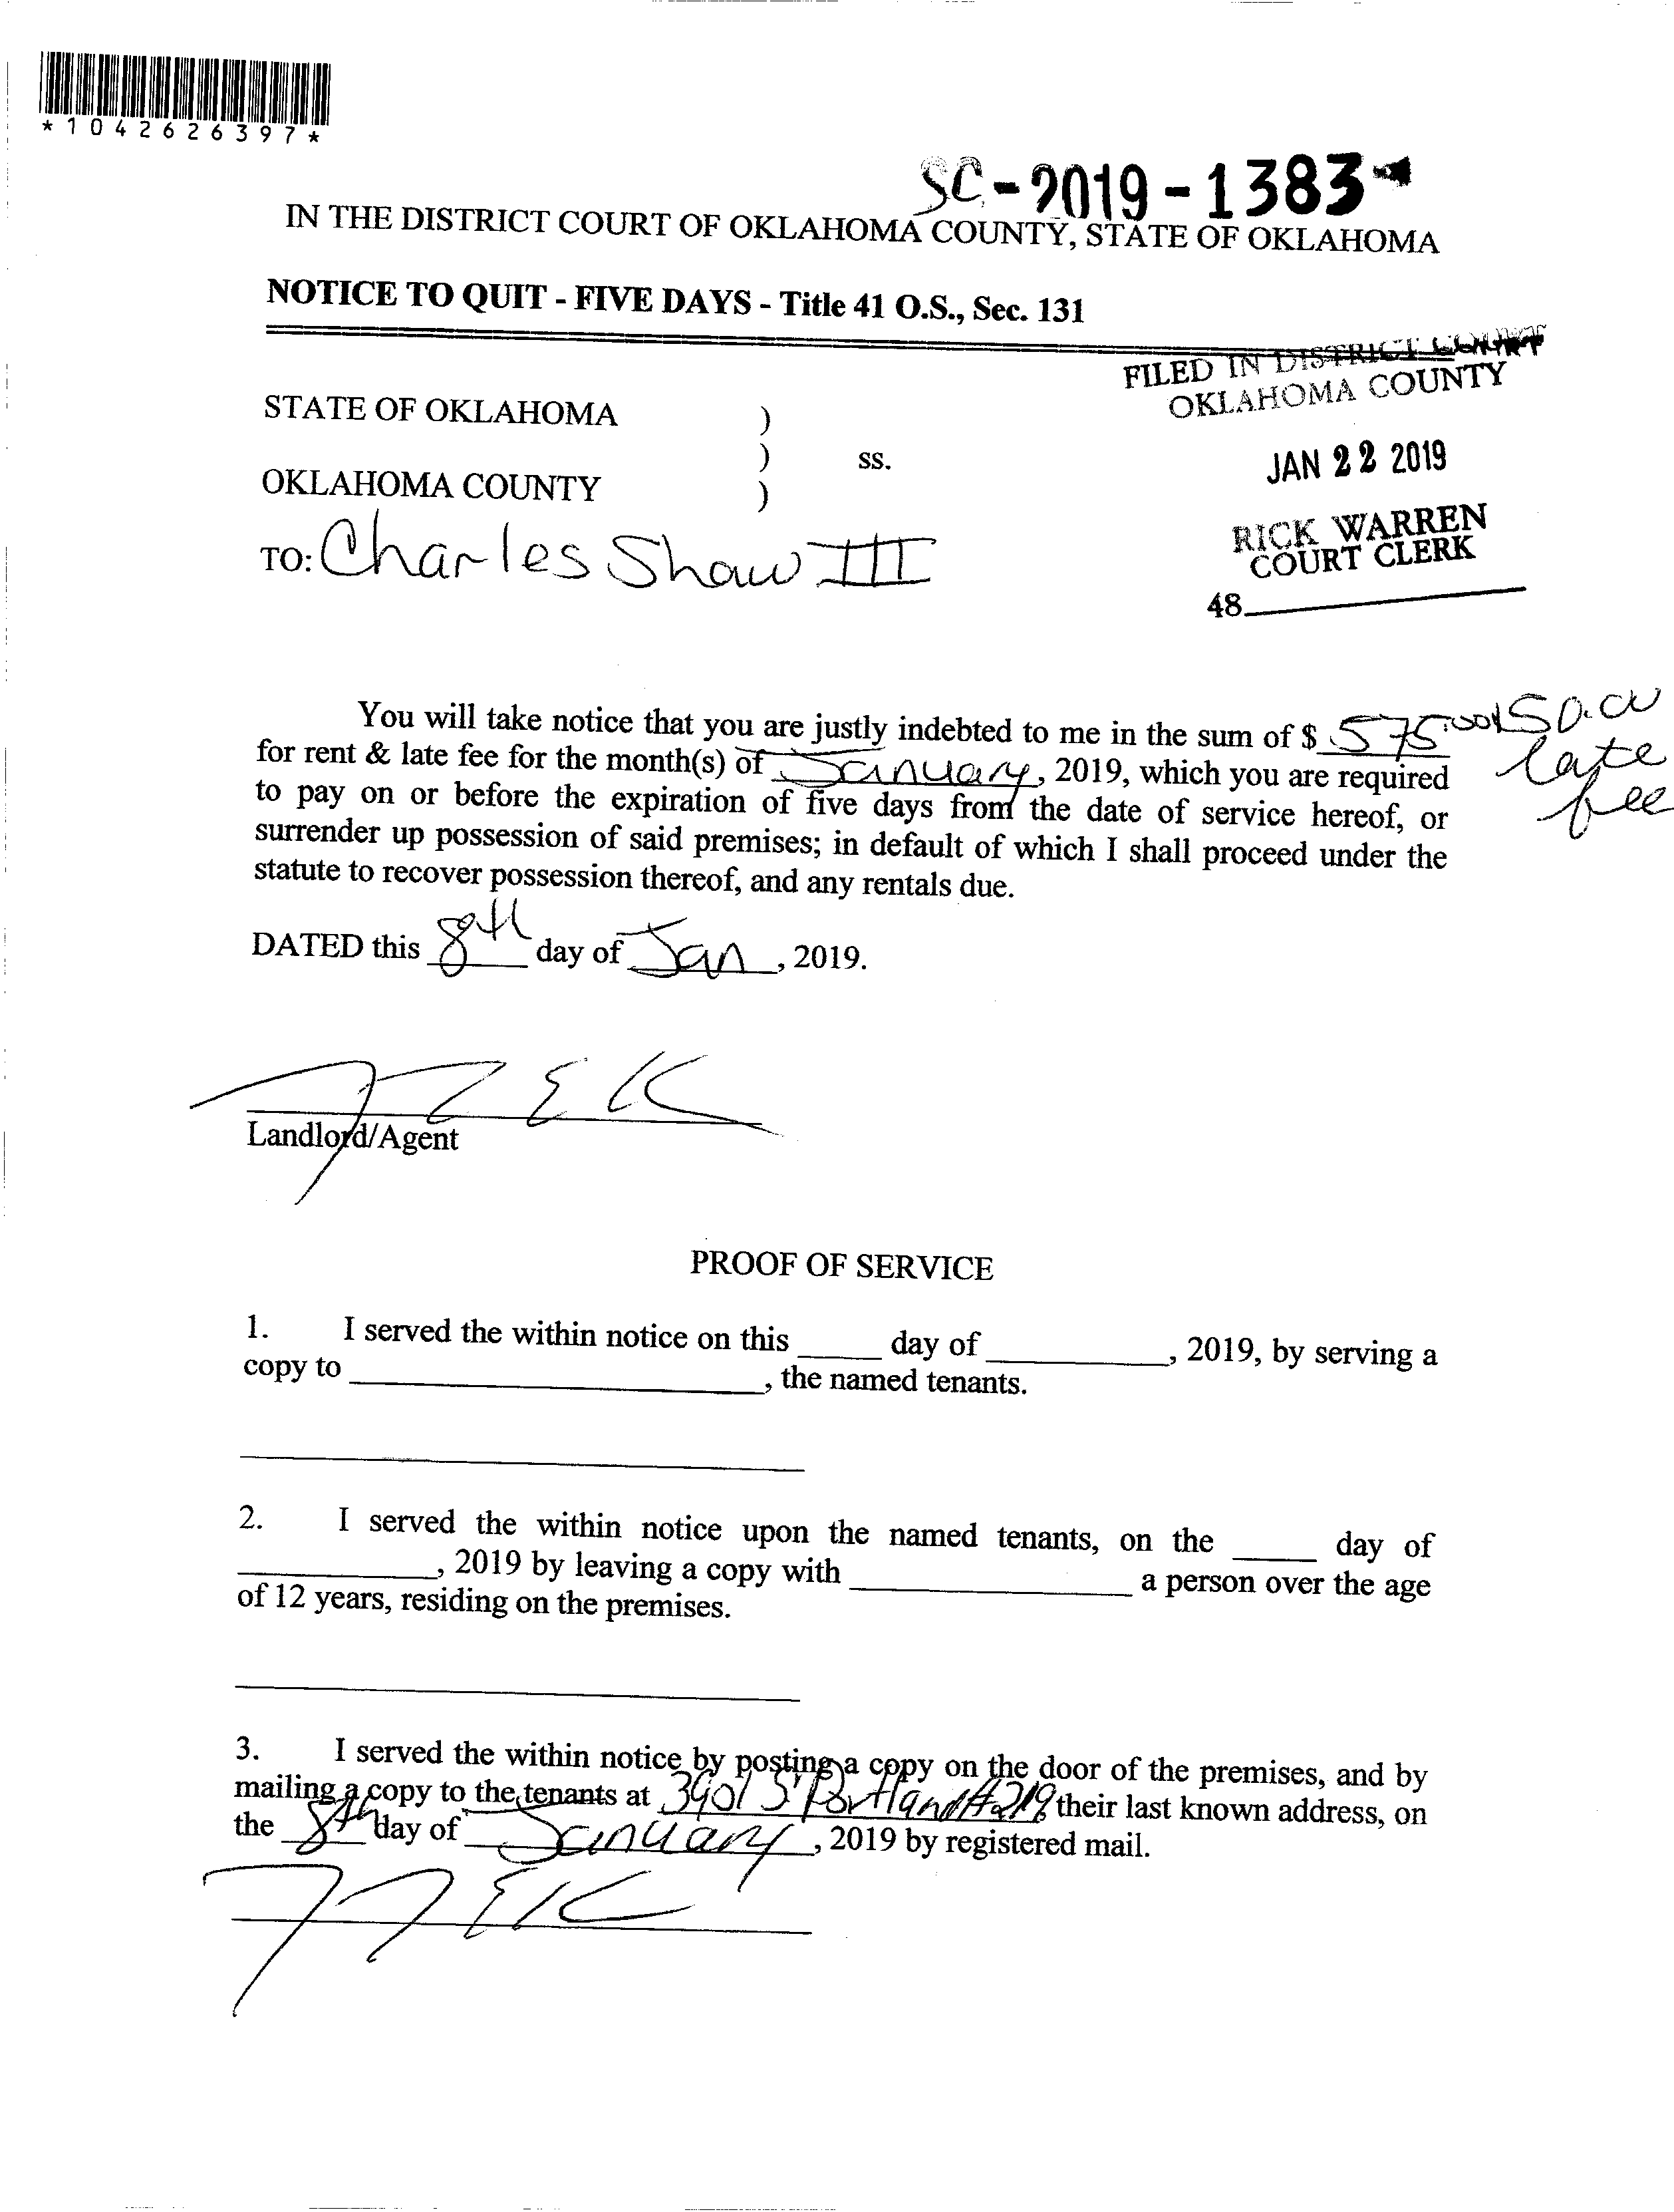 *1042626397*
SC-2019-1383
IN THE DISTRICT COURT OF OKLAHOMA COUNTY, STATE OF OKLAHOMA
NOTICE TO QUIT - FIVE DAYS - Title 41 O.S., Sec. 131
FILED IN DISTRICT COURT
OKLAHOMA COUNTY
STATE OF OKLAHOMA )
) ss.
OKLAHOMA COUNTY )
JAN 22 2019
RICK WARREN
COURT CLERK
48
TO: Charles Shaw III
You will take notice that you are justly indebted to me in the sum of $ 575.00 + 50.00
late
fee
for rent & late fee for the month(s) of January, 2019, which you are required
to pay on or before the expiration of five days from the date of service hereof, or
surrender up possession of said premises; in default of which I shall proceed under the
statute to recover possession thereof, and any rentals due.
DATED this 8th day of Jan, 2019.
Landlord/Agent
PROOF OF SERVICE
1. I served the within notice on this _____ day of ___________, 2019, by serving a
copy to _________________________, the named tenants.
2. I served the within notice upon the named tenants, on the _____ day of
____________, 2019 by leaving a copy with _________________ a person over the age
of 12 years, residing on the premises.
3. I served the within notice by posting a copy on the door of the premises, and by
mailing a copy to the tenants at 3901 S Portland #219, their last known address, on
the 8th day of January, 2019 by registered mail.